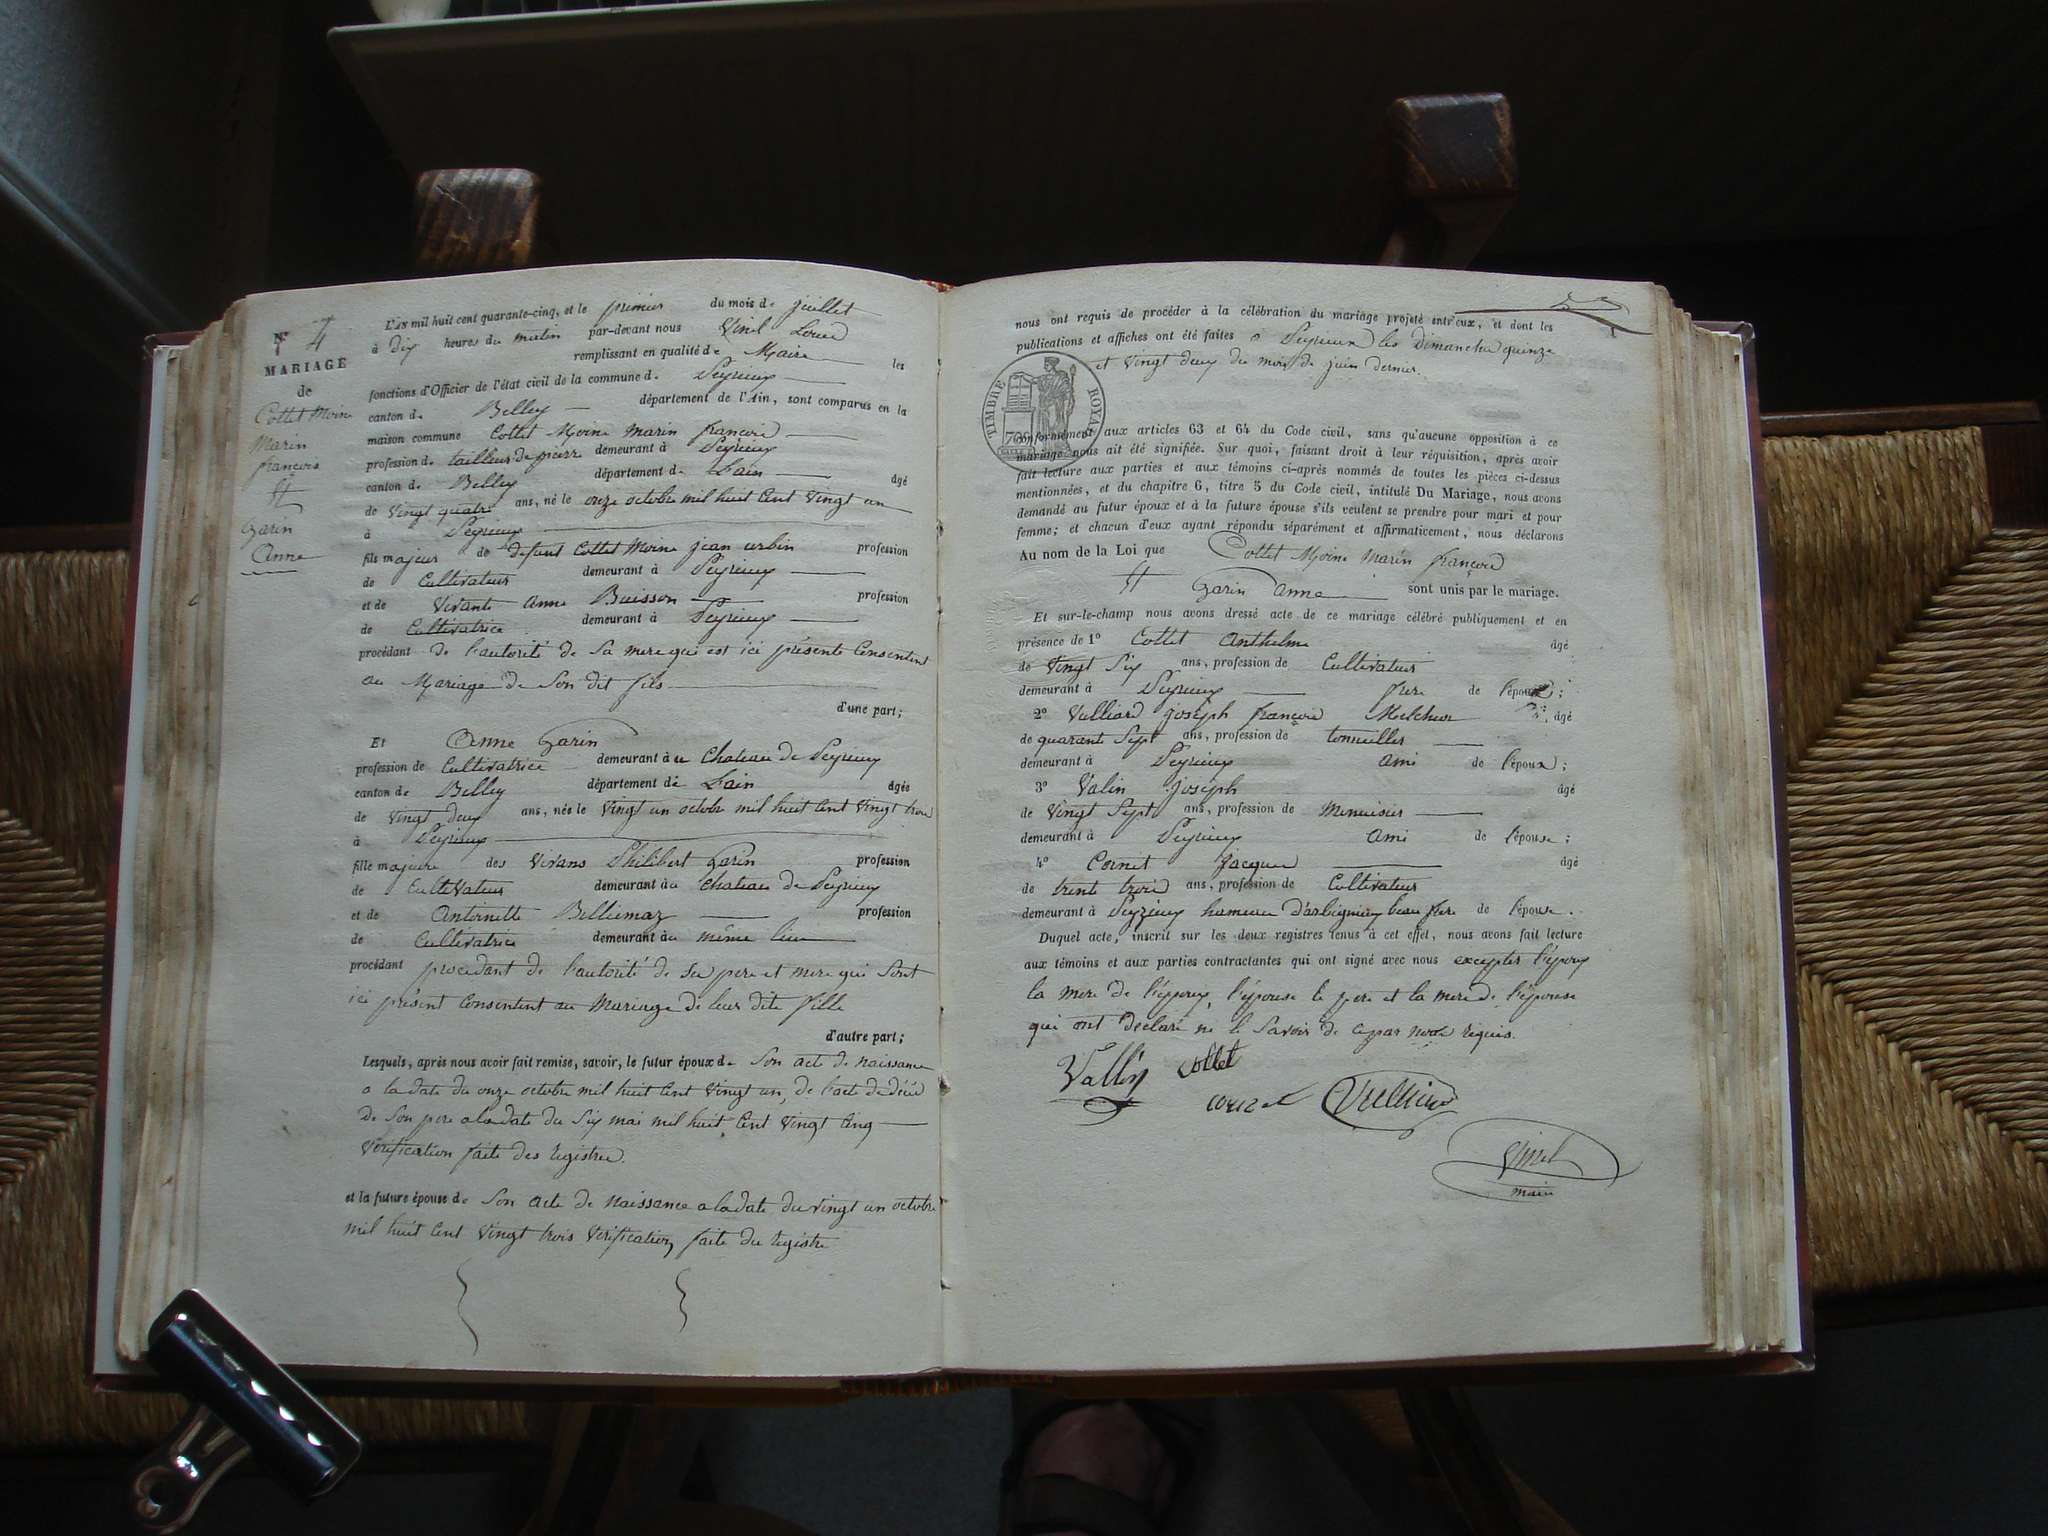 N° 4
MARIAGE
de
Collet Moine
Marin
françois
et
Garin
Anne
L'AN mil huit cent quarante-cinq, et le premier du mois de juillet
à dix heures du matin par-devant nous Vinel Louis
remplissant en qualité de Maire les
fonctions d'Officier de l'état civil de la commune de Peyrieux
canton de Belley département de l'Ain, sont comparus en la
maison commune Collet Moine Marin françois
profession de tailleur de pierre demeurant à Peyrieux
canton de Belley département de Lain âgé
de Vingt quatre ans, né le onze octobre mil huit Cent Vingt un
à Peyrieux
fils majeur de defunt Collet Moine jean urbin profession
de Cultivateur demeurant à Peyrieux
et de Vivante Anne Buisson profession
de Cultivatrice demeurant à Peyrieux
procédant de l'autorité de Sa mere qui est ici présente Consentent
au Mariage de Son dit fils
d'une part;
Et Anne Garin
profession de Cultivatrice demeurant à u Chateau de Peyrieux
canton de Belley département de Lain âgée
de Vingt deux ans, née le Vingt un octobre mil huit Cent Vingt trois
à Peyrieux
fille majeure des Vivans Philibert Garin profession
de Cultivateur demeurant au Chateau de Peyrieux
et de Antoinette Belliemaz profession
de Cultivatrice demeurant au même lieu
procédant procedant de l'autorité de Ses pere et mere qui Sont
ici présent Consentent au Mariage de leur dite fille
d'autre part;
Lesquels, après nous avoir fait remise, savoir, le futur époux de Son acte de naissance
a la date du onze octobre mil huit Cent Vingt un, de l'acte de décés
de Son pere a la date du Six mai mil huit Cent Vingt Cinq
Vérification faite des registres.
et la future épouse de Son acte de naissance a la date du vingt un octobre
mil huit Cent Vingt trois Vérification faite du registre
nous ont requis de procéder à la célébration du mariage projeté entr'eux, et dont les
publications et affiches ont été faites a Peyrieux les dimanches quinze
et Vingt deux du mois de juin dernier.
TIMBRE ROYAL
70
conformément aux articles 63 et 64 du Code civil, sans qu'aucune opposition à ce
mariage nous ait été signifiée. Sur quoi, faisant droit à leur réquisition, après avoir
fait lecture aux parties et aux témoins ci-après nommés de toutes les pièces ci-dessus
mentionnées, et du chapitre 6, titre 5 du Code civil, intitulé Du Mariage, nous avons
demandé au futur époux et à la future épouse s'ils veulent se prendre pour mari et pour
femme; et chacun d'eux ayant répondu séparément et affirmaticement, nous déclarons
Au nom de la Loi que Collet Moine Marin françois
et Garin Anne sont unis par le mariage.
Et sur-le-champ nous avons dressé acte de ce mariage célébré publiquement et en
présence de 1° Collet Anthelme âgé
de Vingt Six ans, profession de Cultivateur
demeurant à Peyrieux frere de l'époux;
2° Vulliard joseph françois Melchior âgé
de quarante Sept ans, profession de tonnellier
demeurant à Peyrieux ami de l'époux;
3° Valin joseph âgé
de Vingt Sept ans, profession de Menuisier
demeurant à Peyrieux ami de l'épouse;
4° Cornet jacques âgé
de trente trois ans, profession de Cultivateur
demeurant à Peyrieux hameau d'arbignieu beau frere de l'épouse.
Duquel acte, inscrit sur les deux registres tenus à cet effet, nous avons fait lecture
aux témoins et aux parties contractantes qui ont signé avec nous excepter l'époux
la mere de l'époux, l'épouse le pere et la mere de l'épouse
qui ont déclaré ne le Savoir de ce par nous requis.
Vallin Collet
cornet Vulliard
Vinel
maire